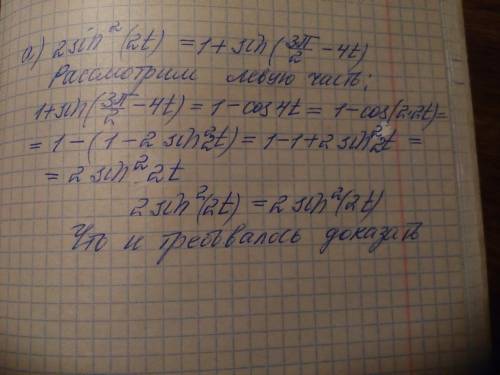 а) 2 sin² (2t) = 1 + sin (3π/2 - 4t)
Рассмотрим левую часть:
1 + sin (3π/2 - 4t) = 1 - cos 4t = 1 - cos (2·2t) =
= 1 - (1 - 2 sin² 2t) = 1 - 1 + 2 sin² 2t =
= 2 sin² 2t
2 sin² (2t) = 2 sin² (2t)
Что и требовалось доказать